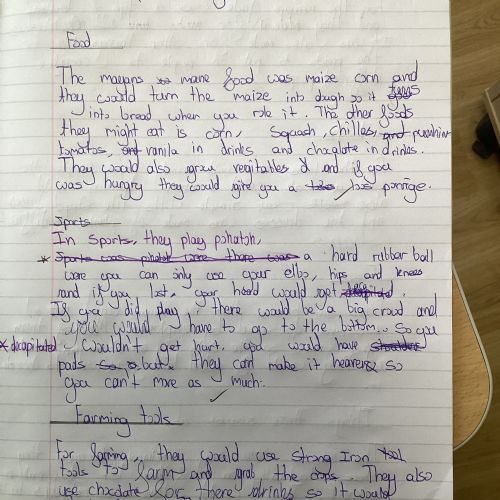 Food
The mayans mane food was maize corn and
they would turn the maize into dough so it turns
into bread when you role it. The other foods
they might eat is corn, Squash, chilles, and pumkin
tomatos, and vanila in drinks and choclate in drinks.
They would also grow vegitables and if you
was hungry they would give you a porrige.
Sports
In Sports, they play pohatoh,
* Sports was pohatoh were there was a hard rubber ball
were you can only use your elbo, hips and knees
and if you lost, your head would get.
If you did play there would be a big crowd and
you would have to go to the bottom. So you
* decapitated wouldn't get hurt, you would have shoulder
pads but they can make it hearer so
you can't move as much.
Farming tools
For farming, they would use strong Iron tool
tools to farm and grab the crops. They also
use choclate for there drinks so it would